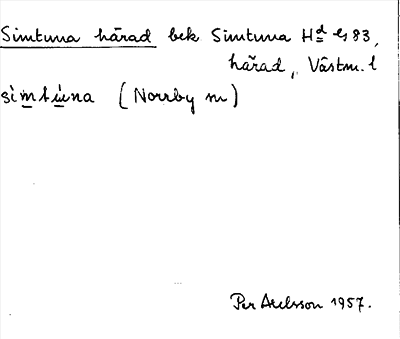 Simtuna härad bek Simtuna Hd Gs 83,
härad, Västm. l
sìmtùna (Norrby m)
Per Axelsson 1957.